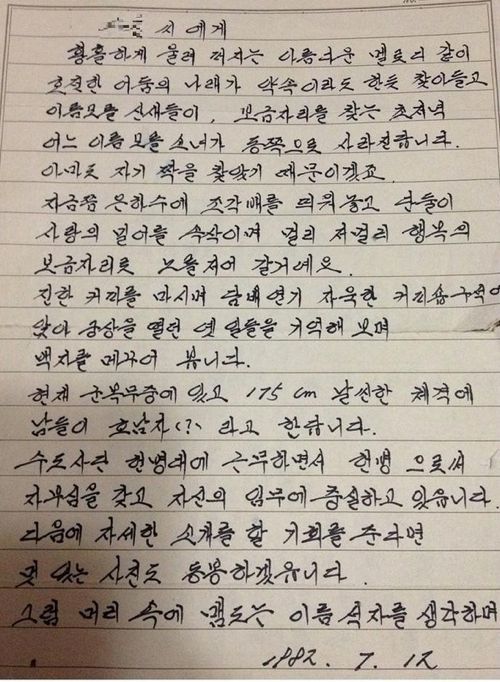 씨에게
황홀하게 울려 퍼지는 아름다운 멜로디 같이
호젓한 어둠의 나래가 약속이라도 한듯 찾아들고
이름모를 산새들이, 보금자리를 찾는 초저녁
어느 이름 모를 소녀가 동쪽으로 사라진답니다.
아마도 자기 짝을 찾았기 때문이겠죠.
지금쯤 은하수에 조각배를 띄워 놓고 단둘이
사랑의 밀어를 속삭이며 멀리 저멀리 행복의
보금자리로 노를저어 갈거예요.
진한 커피를 마시며 담배연기 자욱한 커피숍구석에
앉아 궁상을 떨던 옛 일들을 기억해 보며
백지를 메꾸어 봅니다.
현재 군복무중에 있고 175 cm 날씬한 체격에
남들이 호남자(?) 라고 한답니다.
수도사단 헌병대에 근무하면서 헌병 으로써
자부심을 갖고 자신의 임무에 충실하고 있읍니다.
다음에 자세한 소개를 할 기회를 준다면
멋 있는 사진도 동봉하겠읍니다.
그럼 머리 속에 맴도는 이름 석자를 생각하며
1982. 7. 12